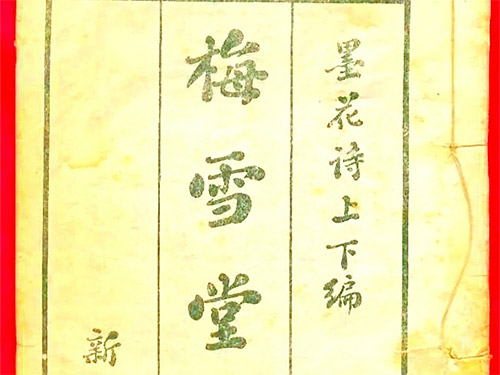 墨花诗上下编
梅雪堂
新